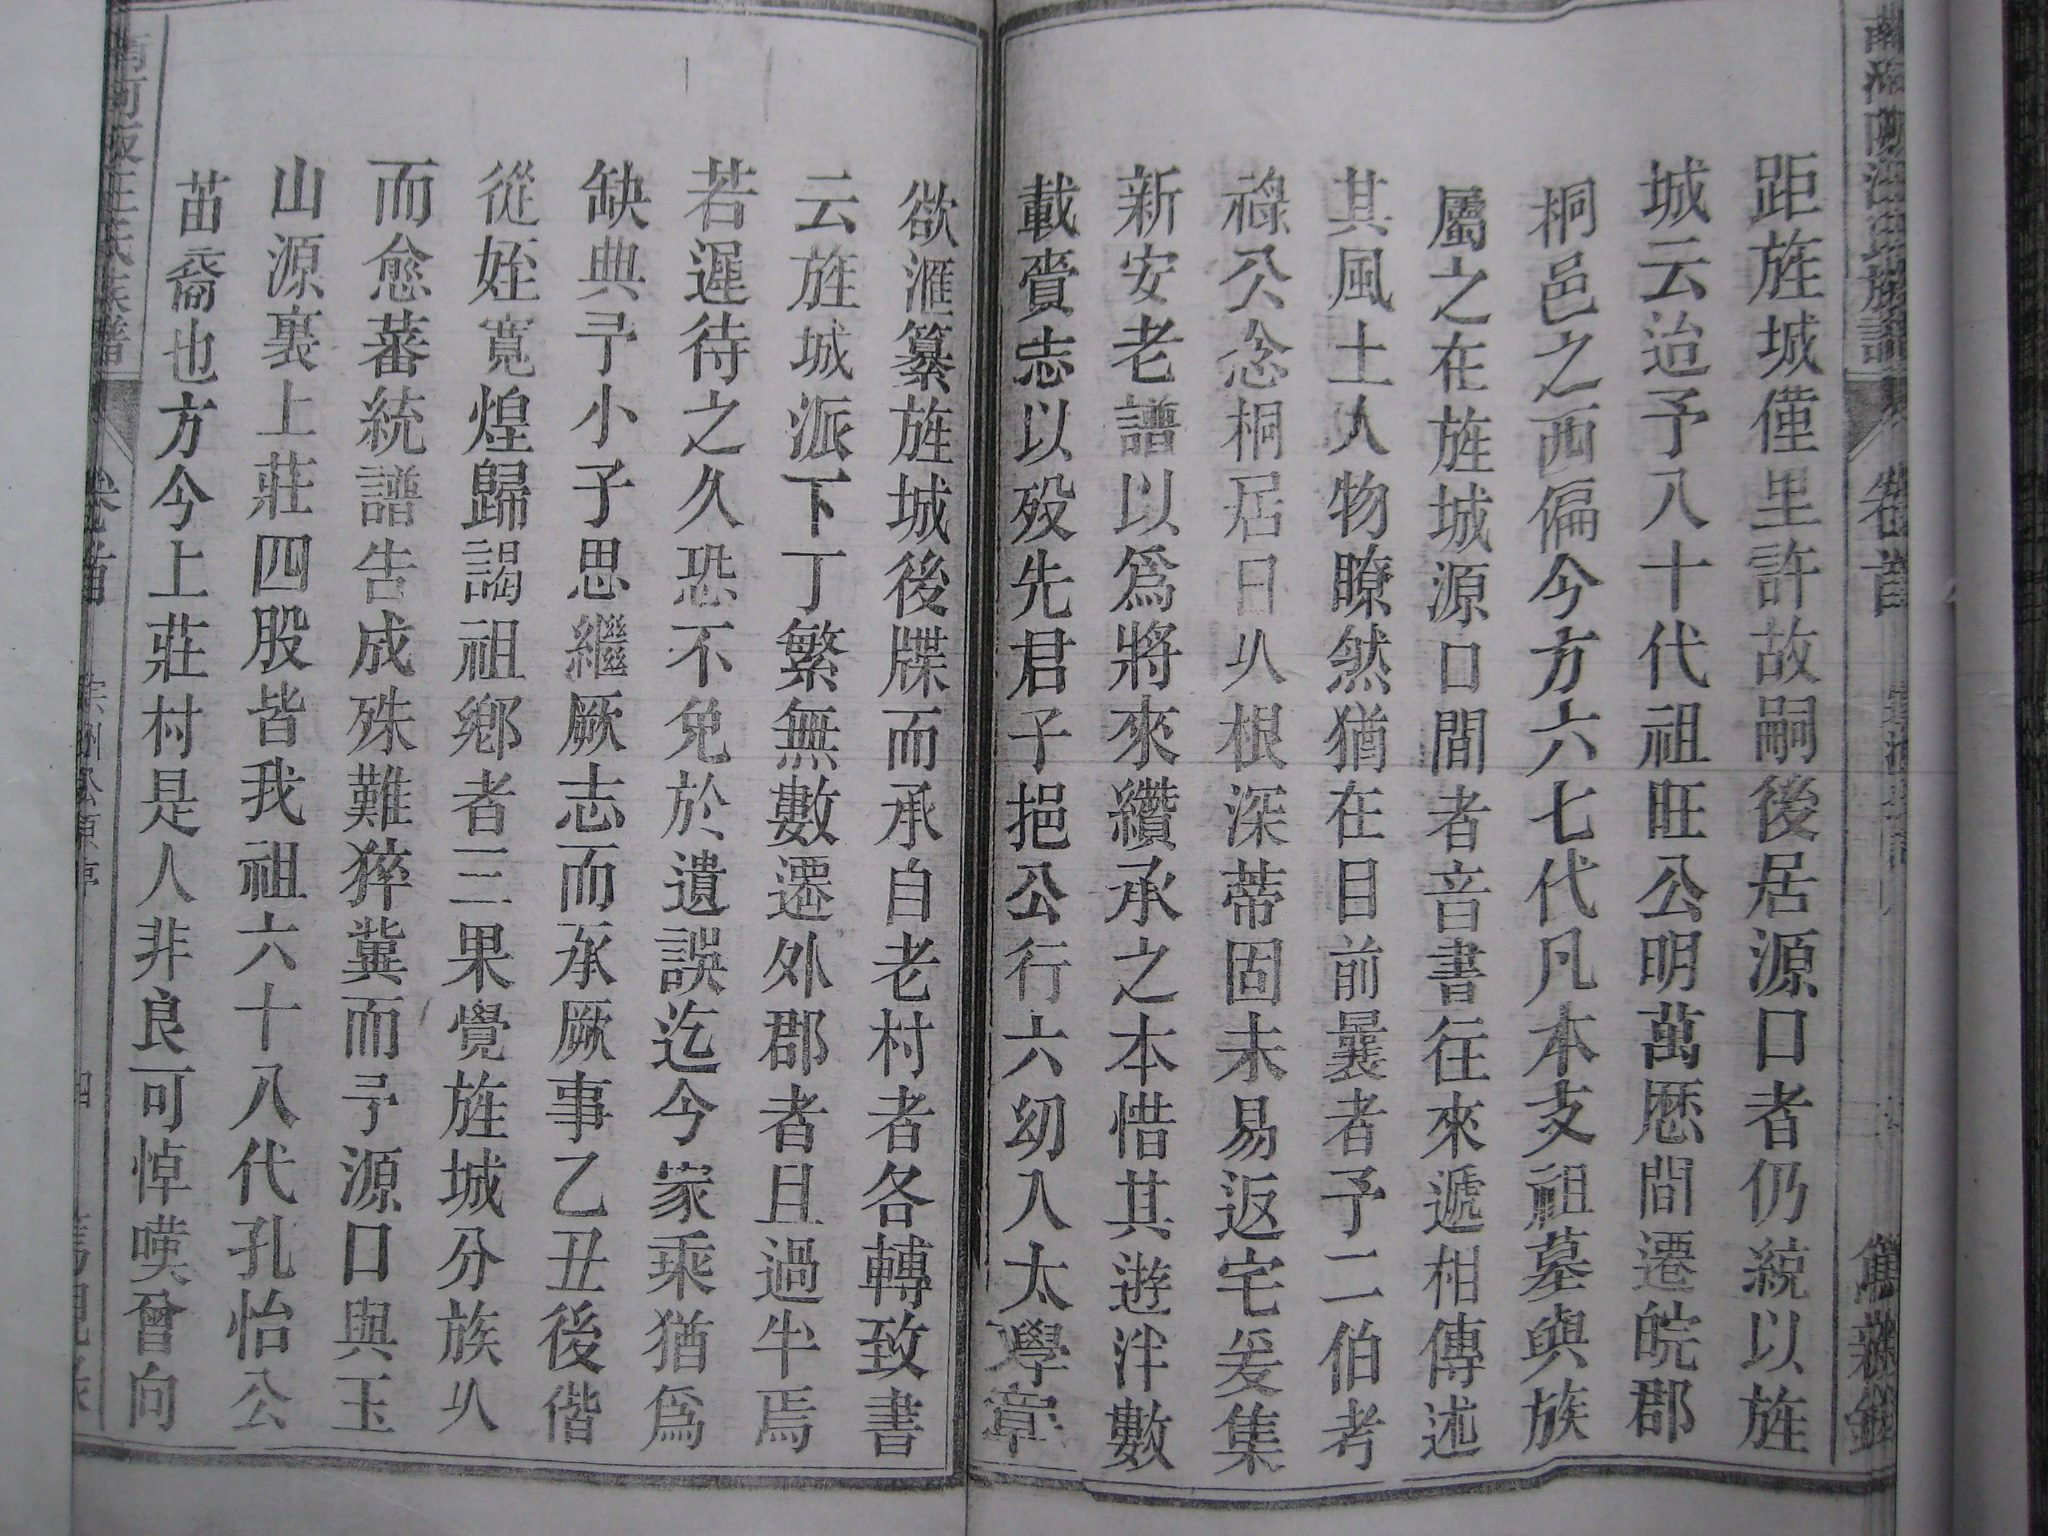 距旌城僅里許故嗣後居源口者仍統以旌
城云迨予八十代祖旺公明萬厯間遷皖郡
桐邑之西偏今方六七代凡本支祖墓與族
屬之在旌城源口間者音書往來遞相傳述
其風土人物瞭然猶在目前曩者予二伯考
祿公念桐居日乆根深蒂固未易返宅爰集
新安老譜以爲將來纘承之本惜其遊泮數
載賫志以殁先君子挹公行六幼入太學章
欲滙纂旌城後牒而承自老村者各轉致書
云旌城派下丁繁無數遷外郡者且過半焉
若遲待之久恐不免於遺誤迄今家乘猶爲
缺典予小子思繼厥志而承厥事乙丑後偕
從姪寬煌歸謁祖鄉者三果覺旌城分族乆
而愈蕃統譜告成殊難猝冀而予源口與玉
山源裏上莊四股皆我祖六十八代孔怡公
苗裔也方今上莊村是人非良可悼嘆曾向
卷首